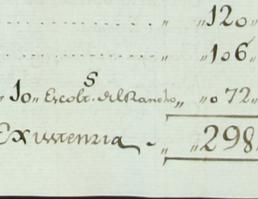 " 120
" 106
" 10 " Escolt.s del Rancho " " 072 "
Existencia " " 298 "